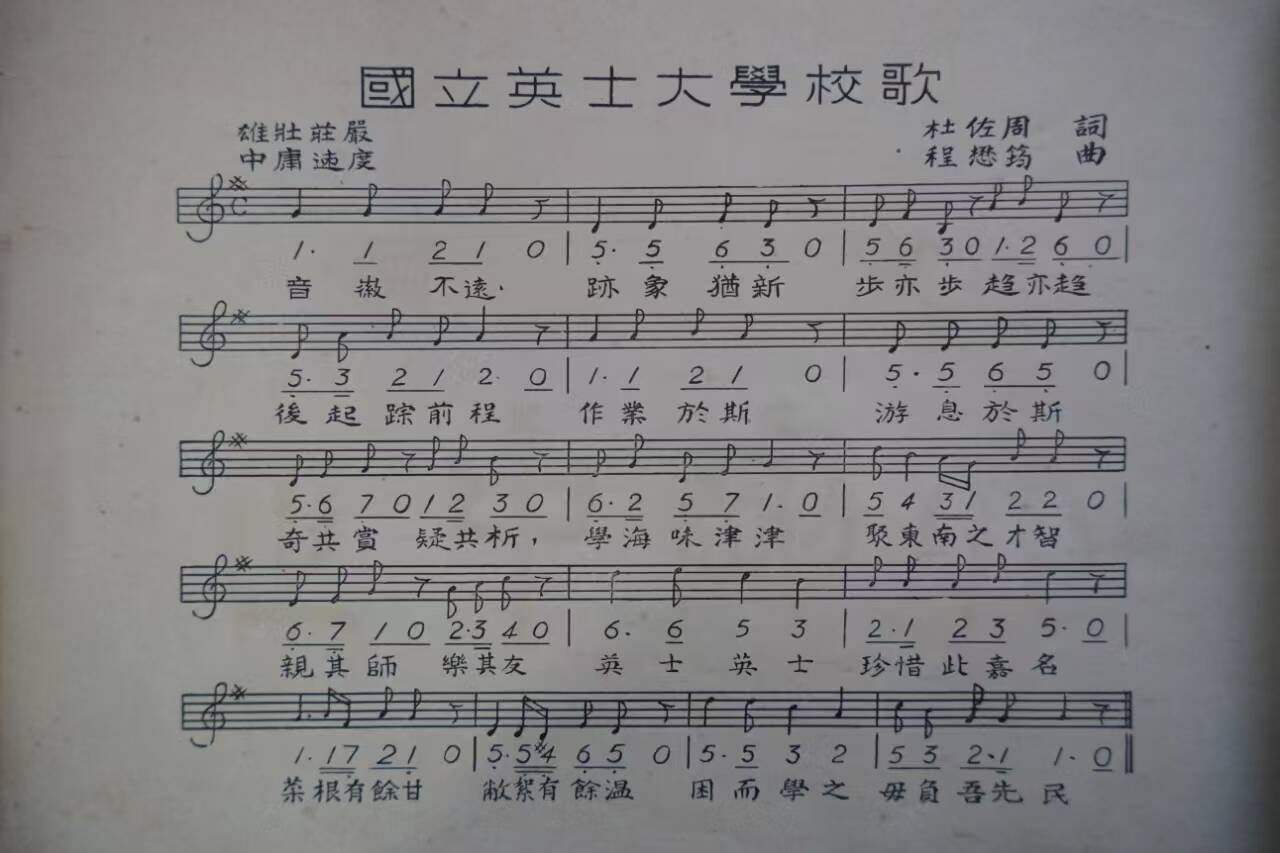 國立英士大學校歌
雄壯莊嚴 杜佐周 詞
中庸速度 程懋筠 曲
1· 1 2 1 0 | 5· 5 6 3 0 | 5 6 3 0 1·2 6 0 |
音徽不遠· 跡象猶新 步亦步趋亦趋
5· 3 2 1 2 0 | 1· 1 2 1 0 | 5· 5 6 5 0 |
後起踪前程 作業於斯 游息於斯
5·6 7 0 1 2 3 0 | 6·2 5 7 1·0 | 5 4 3 1 2 2 0 |
奇共賞 疑共析， 學海味津津 聚東南之才智
6·7 1 0 2·3 4 0 | 6· 6 5 3 | 2·1 2 3 5·0 |
親其師 樂其友 英士英士 珍惜此嘉名
1·17 21 0 | 5·5#4 6 5 0 | 5·5 3 2 | 5 3 2·1 1·0 ‖
菜根有餘甘 敝絮有餘温 困而學之 毋負吾先民